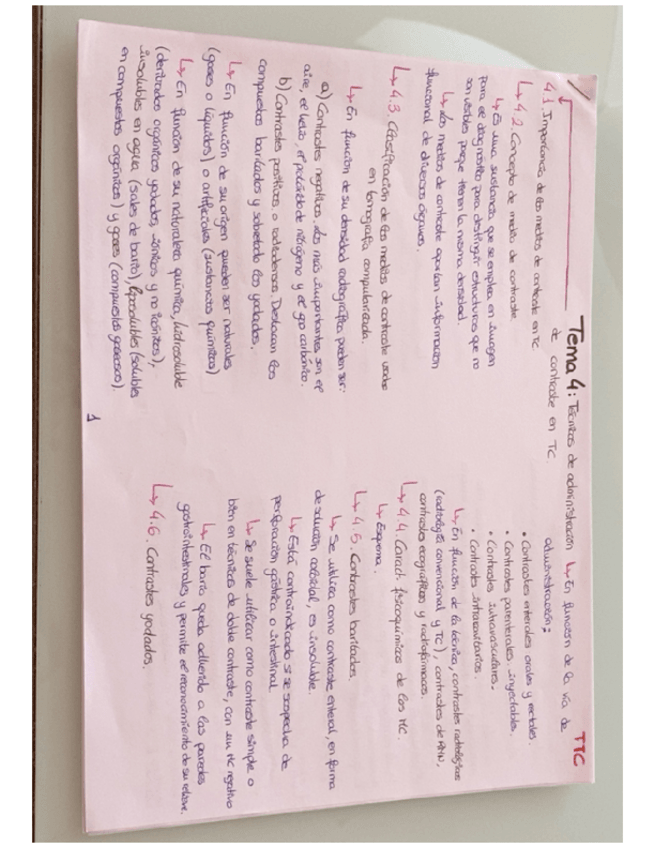 TTC
Tema 4: Técnicas de administración
de contraste en TC
4.1. Importancia de los medios de contraste en TC
↳ 4.2. Concepto de medio de contraste
↳ Es una sustancia que se emplea en imagen
para el diagnóstico para destinguir estructuras que no
son visibles porque tienen la misma densidad.
↳ Los medios de contraste aportan información
funcional de diversos órganos.
↳ 4.3. Clasificación de los medios de contraste usados
en tomografía computarizada.
↳ En función de su densidad radiográfica pueden ser:
a) Contrastes negativos. Los más importantes son el
aire, el helio, el protóxido de nitrógeno y el gas carbónico.
b) Contrastes positivos o radiodensos. Destacan los
compuestos baritados y sobretodo los yodados.
↳ En función de su origen pueden ser naturales
(gases o líquidos) o artificiales (sustancias químicas)
↳ En función de su naturaleza química, hidrosoluble
(derivados orgánicos yodados, iónicos y no iónicos),
insolubles en agua (sales de bario), liposolubles (solubles
en compuestos orgánicos) y gases (compuestos gaseosos)
1
↳ En función de la vía de
administración:
• Contrastes enterales orales y rectales.
• Contrastes parenterales inyectables.
• Contrastes intravasculares.
• Contrastes intracavitarios.
↳ En función de la técnica, contrastes radiológicos
(radiología convencional y TC), contrastes de RMN,
contrastes ecográficos y radiofármacos.
↳ 4.4. Caract. fisicoquímicas de los MC.
↳ Esquema.
↳ 4.5. Contrastes baritados.
↳ Se utiliza como contraste enteral, en forma
de solución coloidal, es insoluble.
↳ Está contraindicado si se sospecha de
perforación gástrica o intestinal
↳ Se suele utilizar como contraste simple o
bien en técnicas de doble contraste, con un MC negativo
↳ El bario queda adherido a las paredes
gastrointestinales y permite el reconocimiento de su relieve.
↳ 4.6. Contrastes yodados.